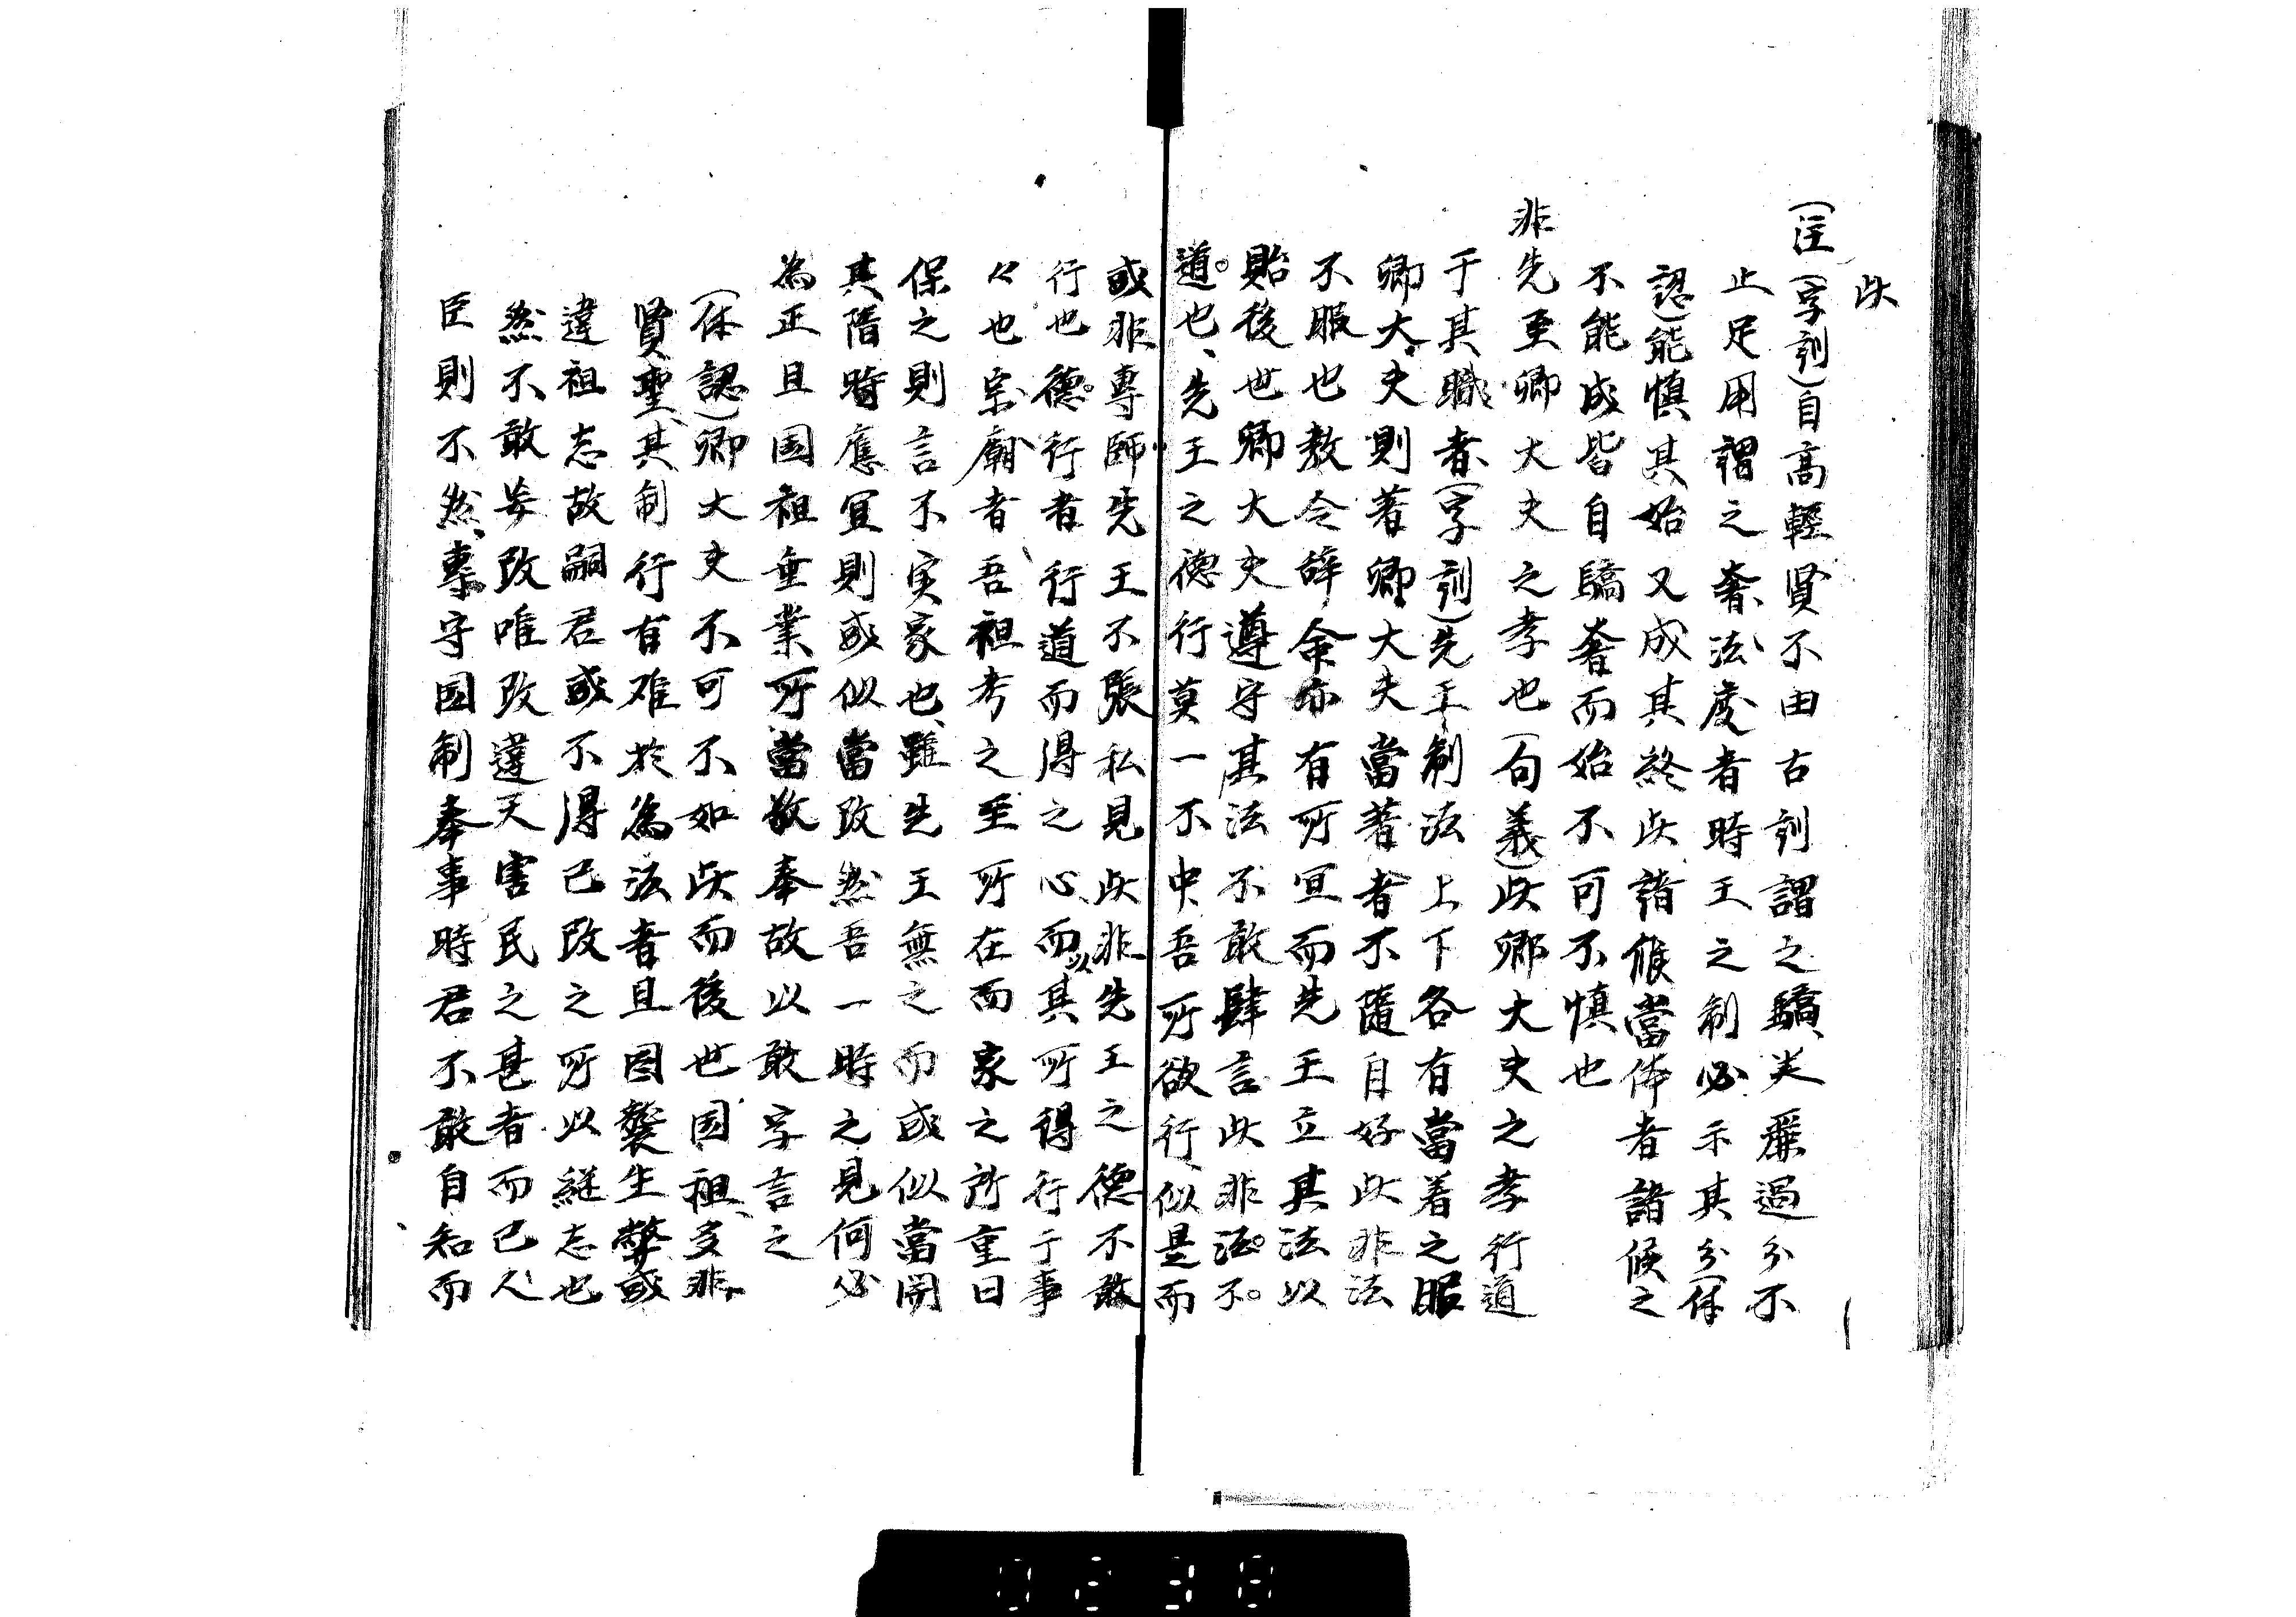 此
(注)(字訓)自高輕賢不由古訓謂之驕災罹過分不
止足用謂之奢法度者時王之制必示其分(体
認)能慎其始又成其終此諸候當体者諸候之
不能成皆自驕奢而始不可不慎也
非先至卿大夫之孝也(句義)此卿大夫之孝行道
于其職者(字訓)先王制法上下各有當着之服
卿大夫則著卿大夫當著者不隨自好此非法
不服也教令辞命亦有所宜而先王立其法以
貽後世卿大夫遵守其法不敢肆言此非法不
道也先王之徳行莫一不中吾所欲行似是而
或非專師先王不張私見此非先王之徳不敢
行也徳行者行道而得之心而以其所得行于事
々也宗廟者吾祖考之至所在而家之所重曰
保之則言不実家也雖先王無之而或似當開
其隋時應宜則或似當改然吾一時之見何必
為正且国祖垂業所當敬奉故以敢字言之
(体認)卿大夫不可不如此而後世国祖多非
賢聖其制行有难於為法者且因襲生弊或
違祖志故嗣君或不得已改之所以継志也
然不敢妄改唯改違天害民之甚者而已人
臣則不然專守国制奉事時君不敢自知而